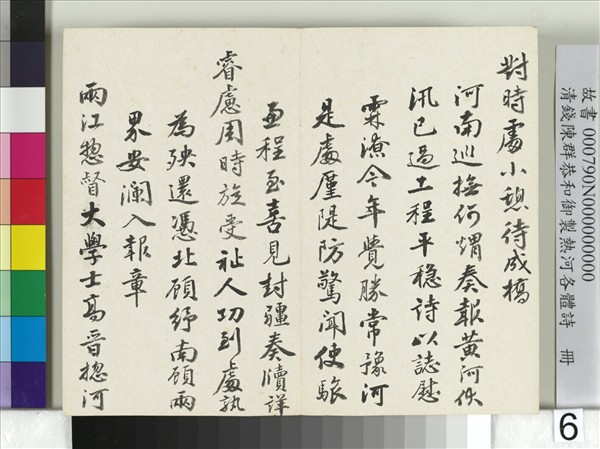 對時處小憩待成橋
河南巡撫何煟奏報黃河伏
汛已過工程平穩詩以誌慰
霖潦今年覺勝常豫河
是處廑隄防驚聞使
程至喜見封疆奏牘詳
睿慮周時旋受祉人功到處孰
為殃還憑北顧紓南顧兩
界安瀾入報章
兩江惣督大學士高晉揔河
故書 000790N000000000
清錢陳群恭和御製熱河各體詩 冊
6